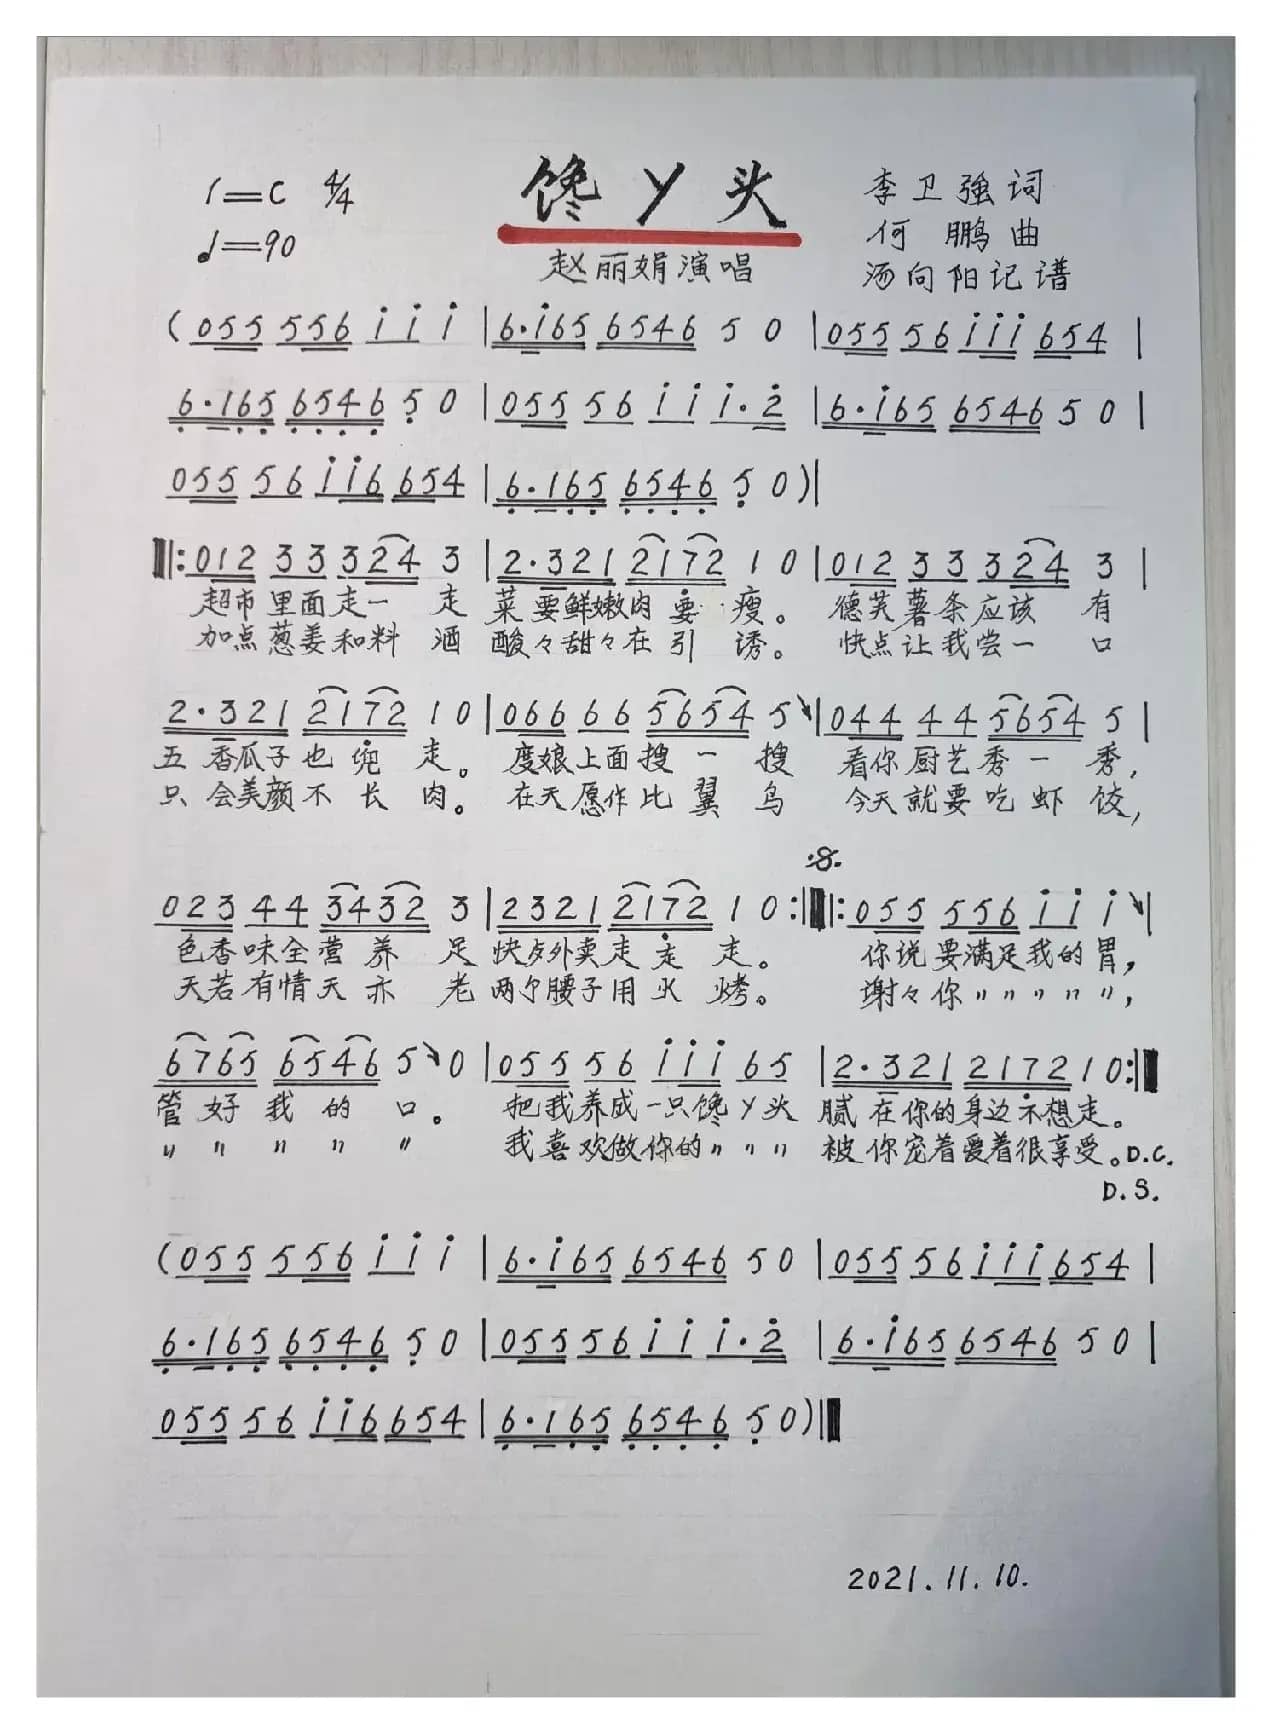 1=C 4/4 馋丫头 李卫强词
♩=90 何鹏曲
赵丽娟演唱 汤向阳记谱
(055 556 i i i | 6·i65 6546 5 0 | 055 56 iii 654 |
6·165 6546 5 0 | 055 56 i i i·2 | 6·i65 6546 5 0 |
055 56 ii6 654 | 6·165 6546 5 0)|
‖:012 33 324 3 | 2·321 2172 1 0 | 012 33 324 3 |
超市里面走一走 菜要鲜嫩肉要瘦。 德芙薯条应该有
加点葱姜和料酒 酸々甜々在引诱。 快点让我尝一口
2·321 2172 1 0 | 066 66 5654 5 | 044 44 5654 5 |
五香瓜子也兜走。 度娘上面搜一搜 看你厨艺秀一秀,
只会美颜不长肉。 在天愿作比翼鸟 今天就要吃虾饺,
:S:
023 44 3432 3 | 2321 2172 1 0 :‖: 055 556 i i i |
色香味全营养足 快步外卖走走走。 你说要满足我的胃,
天若有情天亦老 两尔腰子用火烤。 谢々你〃〃〃〃〃,
6765 6546 5 0 | 055 56 iii 65 | 2·321 2172 1 0 :‖
管好我的口。 把我养成一只馋丫头 腻在你的身边不想走。
〃〃〃〃〃 我喜欢做你的〃〃〃 被你宠着爱着很享受。D.C.
D.S.
(055 556 i i i | 6·i65 6546 5 0 | 055 56 iii 654 |
6·165 6546 5 0 | 055 56 i i i·2 | 6·i65 6546 5 0 |
055 56 ii6 654 | 6·165 6546 5 0)‖
2021.11.10.